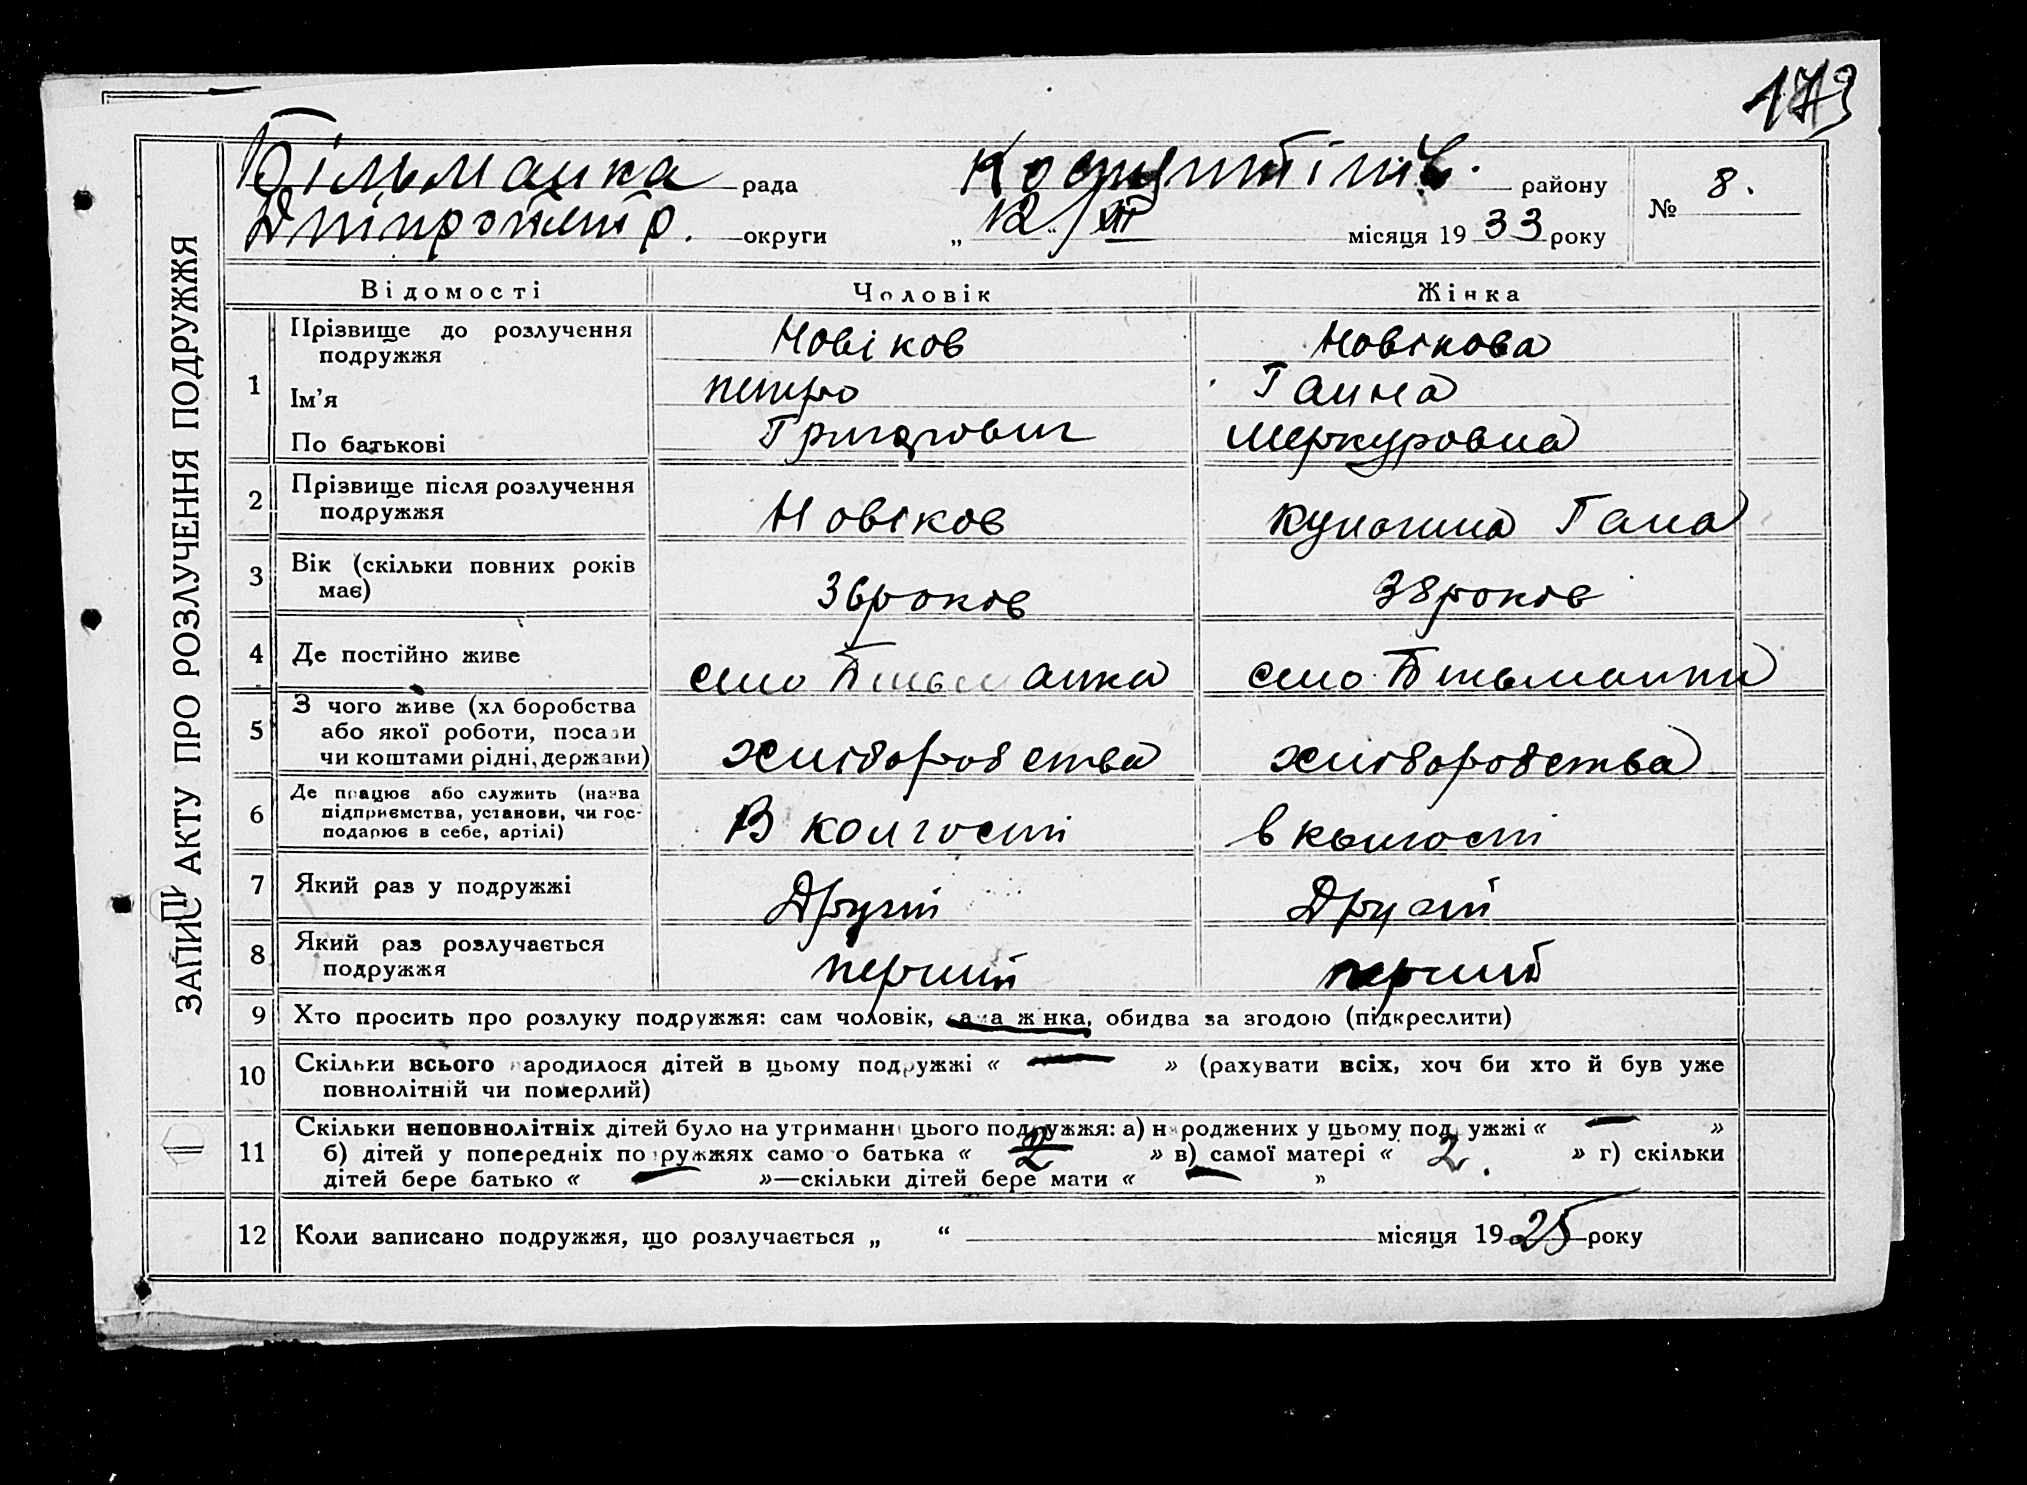 173
Більманка рада
районy № 8.
округи „12“/VII місяця 1933 року
ЗАПИС АКТУ ПРО РОЗЛУЧЕННЯ ПОДРУЖЖЯ
Відомості Чоловік Жінка
1 Прізвище до розлучення подружжя Новіков Новікова
Ім'я Петро Ганна
По батькові Григорович Меркуровна
2 Прізвище після розлучення подружжя Новіков Гана
3 Вік (скільки повних років має) 36 років 38 років
4 Де постійно живе село Більманка село Більманки
5 З чого живе (хл боробства
або якої роботи, посади
чи коштами рідні, держави) хліборобства хліборобства
6 Де працює або служить (назва
підприємства, установи, чи гос-
подарює в себе, артілі) В колгоспі в колгоспі
7 Який раз у подружжі Другий Другий
8 Який раз розлучається подружжя перший перший
9 Хто просить про розлуку подружжя: сам чоловік, сама жінка, обидва за згодою (підкреслити)
10 Скільки всього народилося дітей в цьому подружжі « — » (рахувати всіх, хоч би хто й був уже
повнолітній чи померлий)
11 Скільки неповнолітніх дітей було на утриманні цього подружжя: а) народжених у цьому подружжі « — »
б) дітей у попередніх подружжях самого батька « 2 » в) самої матері « 2. » г) скільки
дітей бере батько « — »—скільки дітей бере мати « — »
12 Коли записано подружжя, що розлучається „ “ місяця 1925 року